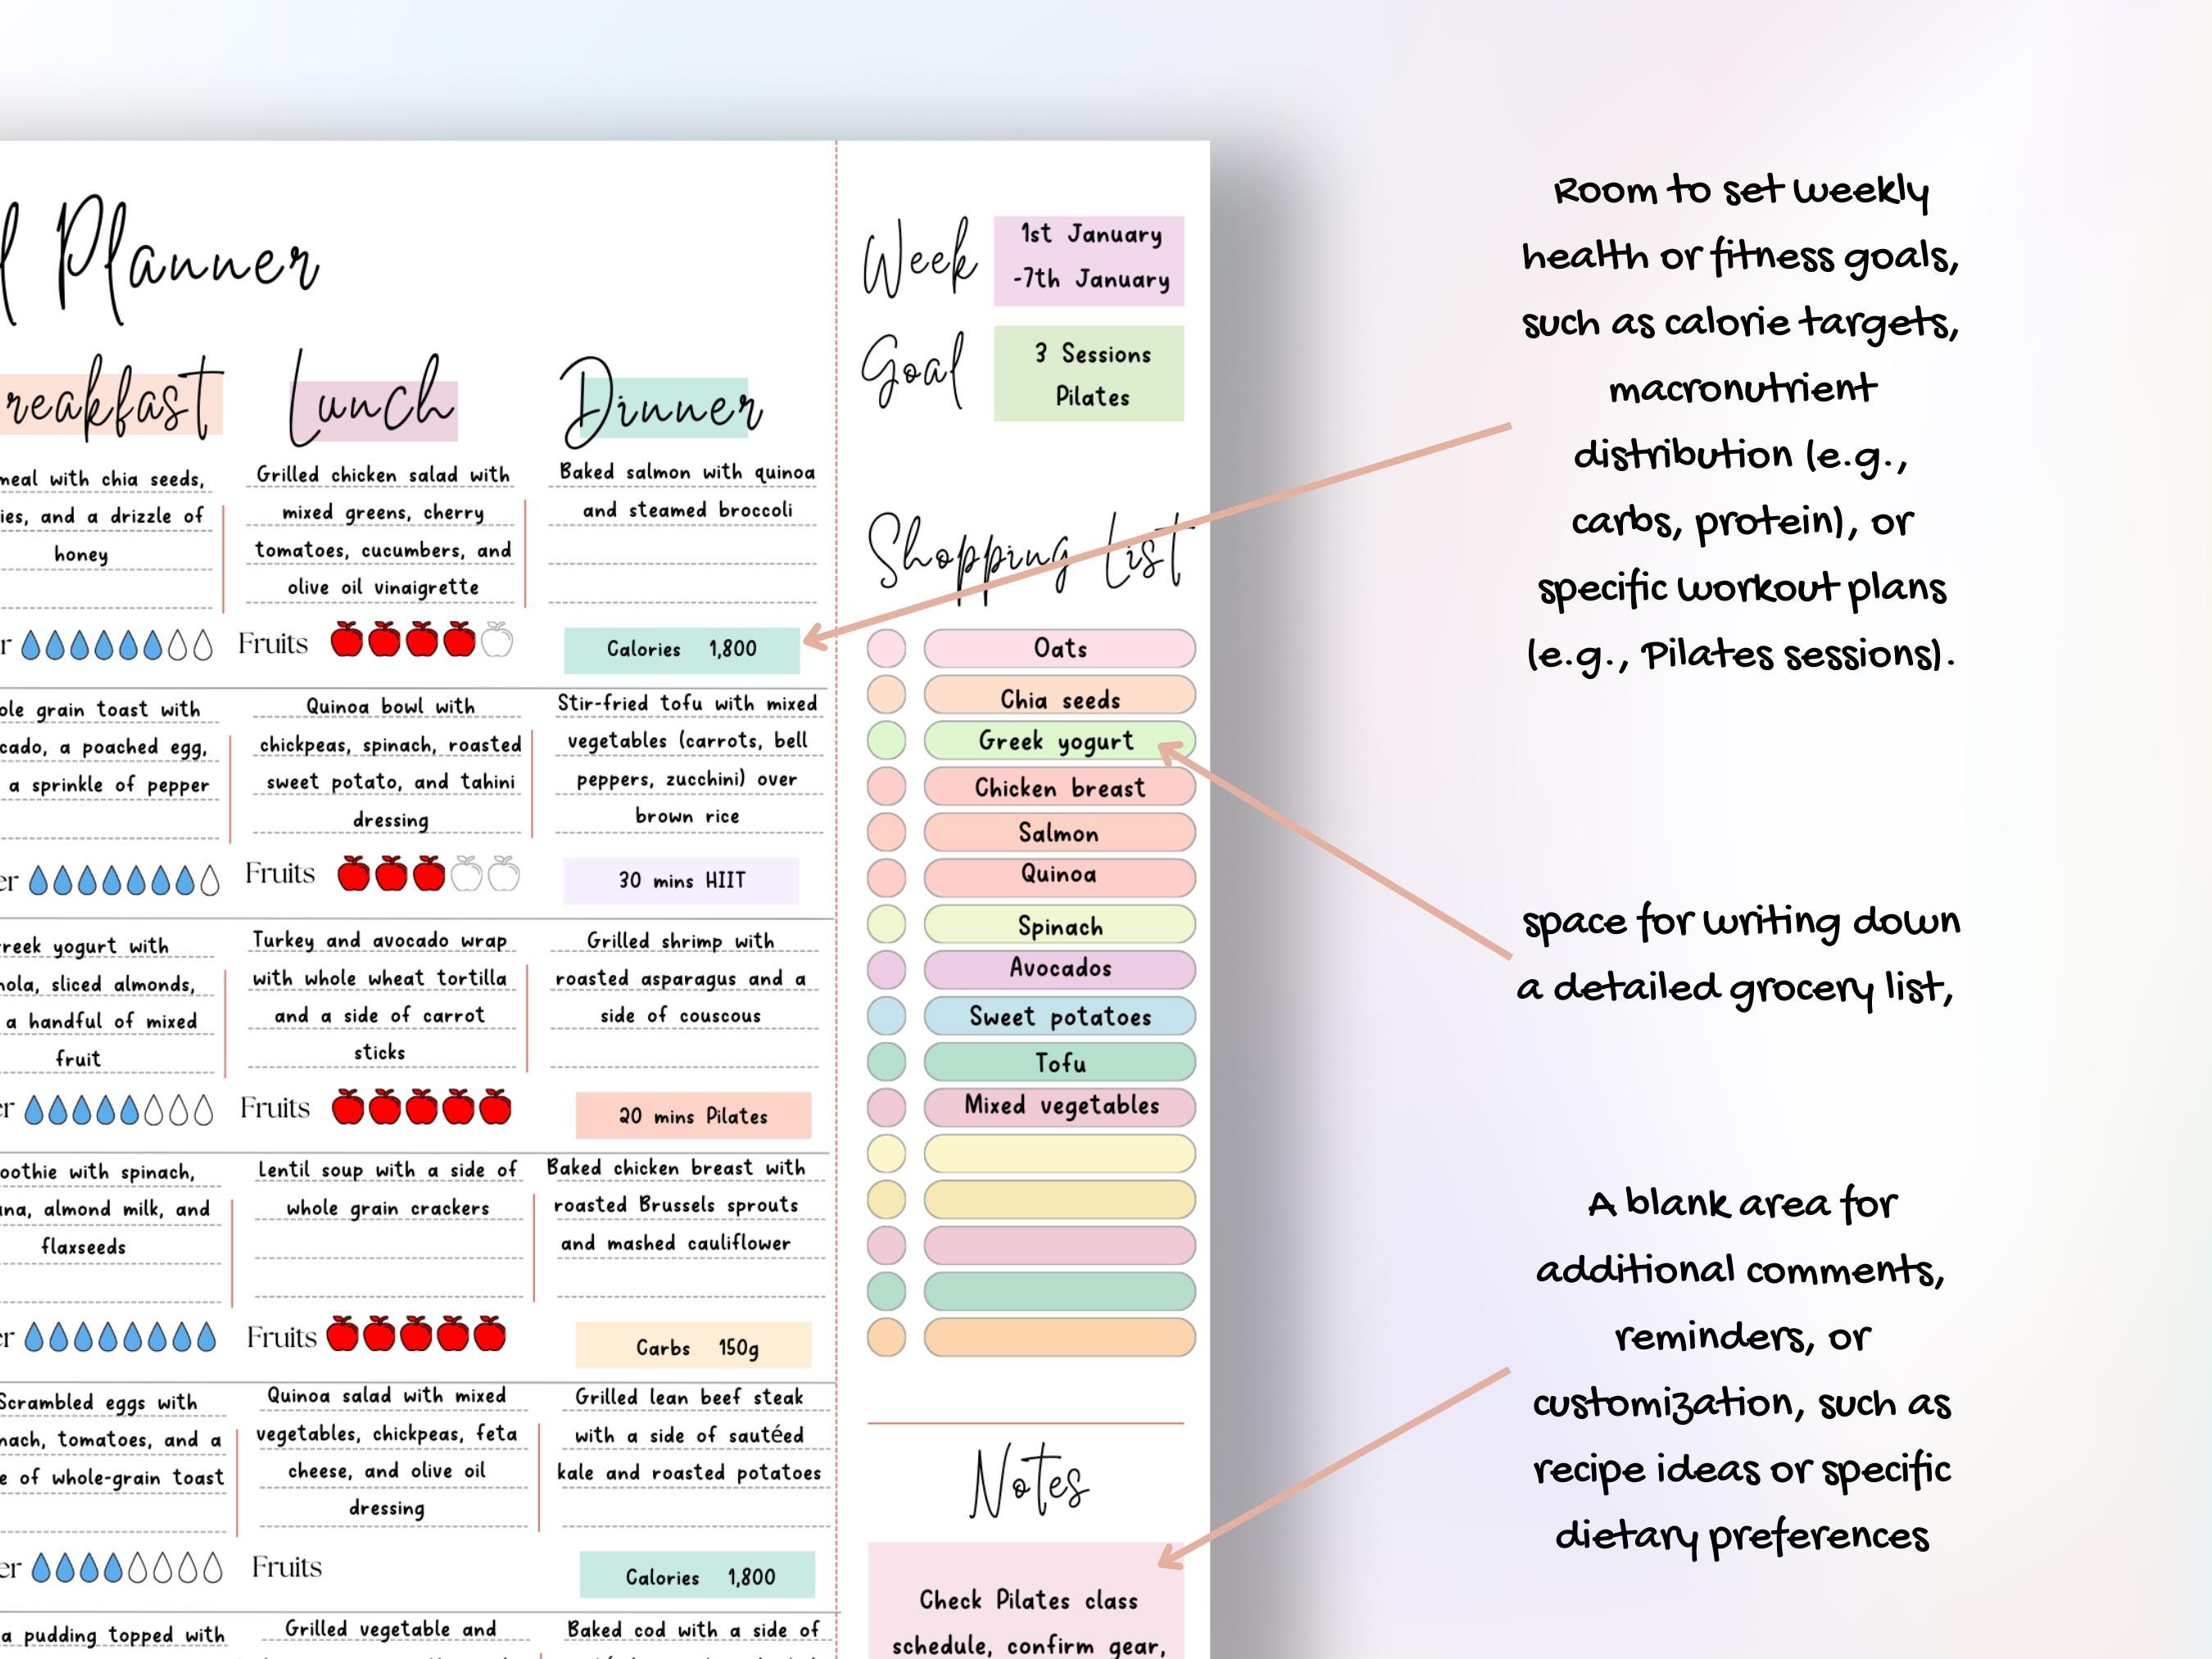 l Planner
Week
1st January
-7th January
Goal
3 Sessions
Pilates
reakfast
Lunch
Dinner
meal with chia seeds,
ies, and a drizzle of
honey
Grilled chicken salad with
mixed greens, cherry
tomatoes, cucumbers, and
olive oil vinaigrette
Baked salmon with quinoa
and steamed broccoli
r
Fruits
Calories 1,800
ole grain toast with
cado, a poached egg,
a sprinkle of pepper
Quinoa bowl with
chickpeas, spinach, roasted
sweet potato, and tahini
dressing
Stir-fried tofu with mixed
vegetables (carrots, bell
peppers, zucchini) over
brown rice
er
Fruits
30 mins HIIT
reek yogurt with
nola, sliced almonds,
a handful of mixed
fruit
Turkey and avocado wrap
with whole wheat tortilla
and a side of carrot
sticks
Grilled shrimp with
roasted asparagus and a
side of couscous
er
Fruits
20 mins Pilates
oothie with spinach,
ana, almond milk, and
flaxseeds
Lentil soup with a side of
whole grain crackers
Baked chicken breast with
roasted Brussels sprouts
and mashed cauliflower
er
Fruits
Carbs 150g
Scrambled eggs with
nach, tomatoes, and a
e of whole-grain toast
Quinoa salad with mixed
vegetables, chickpeas, feta
cheese, and olive oil
dressing
Grilled lean beef steak
with a side of sautéed
kale and roasted potatoes
er
Fruits
Calories 1,800
a pudding topped with
Grilled vegetable and
Baked cod with a side of
Shopping List
Oats
Chia seeds
Greek yogurt
Chicken breast
Salmon
Quinoa
Spinach
Avocados
Sweet potatoes
Tofu
Mixed vegetables
Notes
Check Pilates class
schedule, confirm gear,
Room to set weekly
health or fitness goals,
such as calorie targets,
macronutrient
distribution (e.g.,
carbs, protein), or
specific workout plans
(e.g., Pilates sessions).
space for writing down
a detailed grocery list,
A blank area for
additional comments,
reminders, or
customization, such as
recipe ideas or specific
dietary preferences